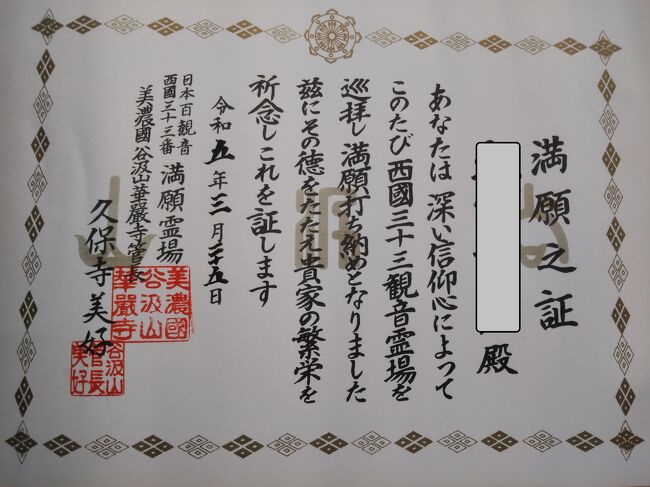 満願之証
殿
あなたは 深い信仰心によって
このたび 西國三十三観音霊場を
巡拝し 満願打ち納めとなりました
茲にその徳をたたえ貴家の繁栄を
祈念しこれを証します
令和五年三月二十五日
日本百観音
西國三十三番 満願霊場
美濃國谷汲山華嚴寺管長
久保寺美好
美濃國
谷汲山
華嚴寺
谷汲山
管長
美好